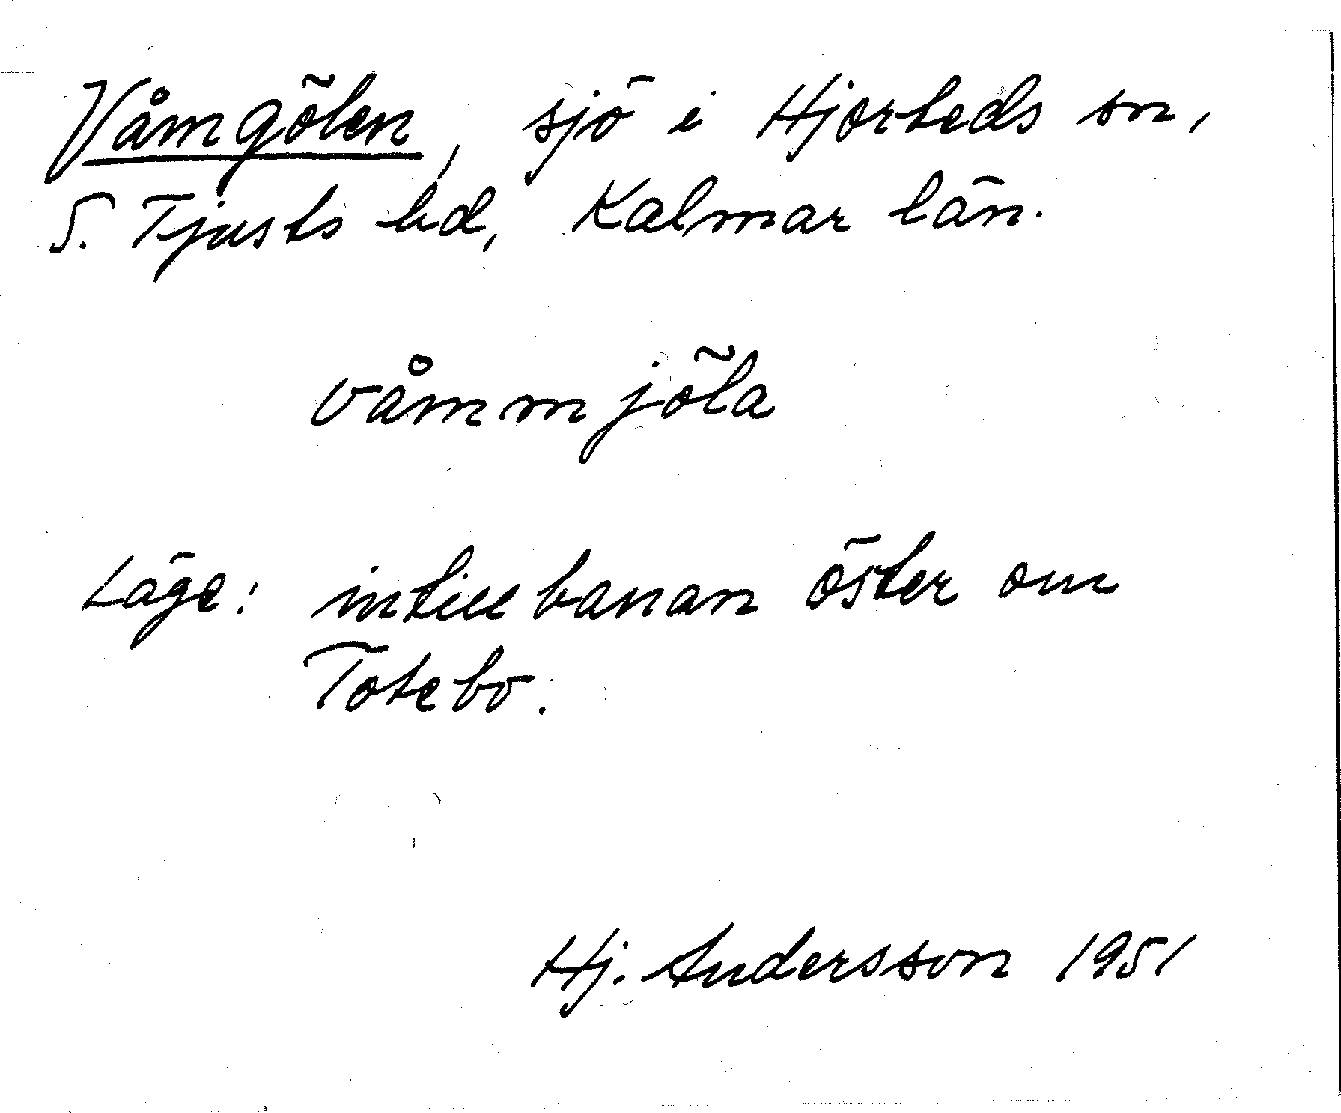 Våmgölen, sjö i Hjorteds sn,
S. Tjusts hd, Kalmar län.
våmmjöla
Läge: intill banan öster om
Totebo.
Hj. Andersson 1951